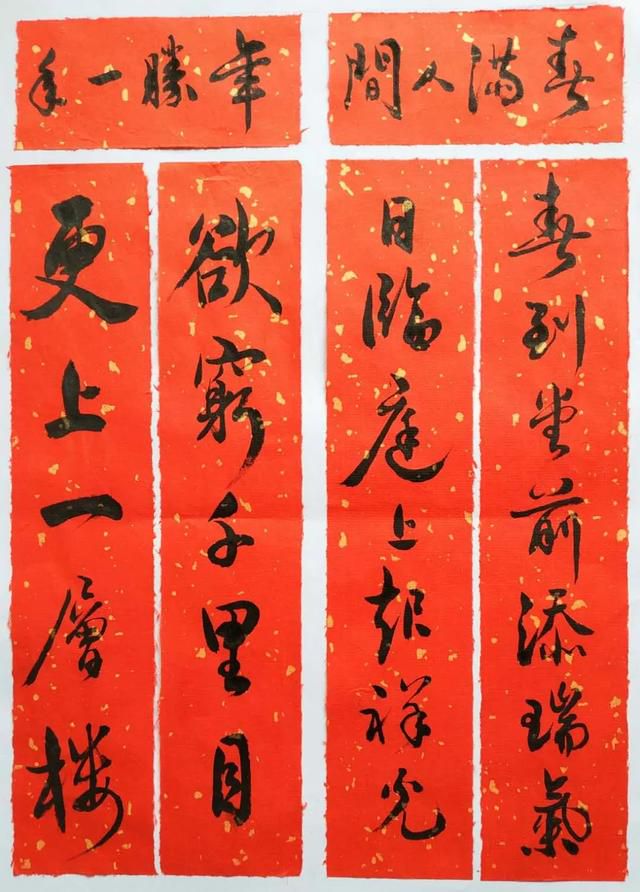 春滿人間
春到堂前添瑞氣
日臨庭上起祥光
年勝一年
欲窮千里目
更上一層樓